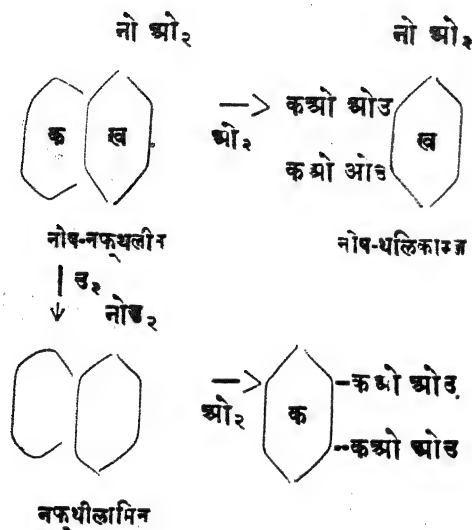 नो ओ२ नो ओ२
क ख ⟶ कओ ओउ ख
ओ२ कओ ओउ
नोष-नफ्थलीन नोष-थलिकाम्ल
उ२
नोउ२
⟶ क -कओ ओउ
ओ२ -कओ ओउ
नफ्थीलामिन